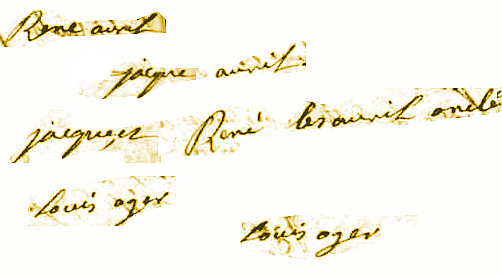 René avril
jacque avril
jacques et René les avril oncle
Louis oger
Louis oger